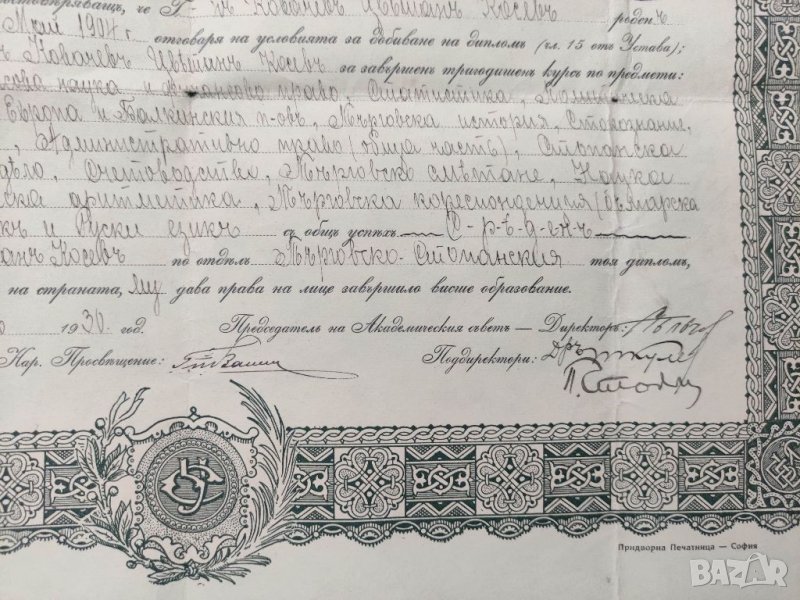 че Г. Ковачевъ Цвѣтанъ Косевъ роденъ
Май 1904 г. отговаря на условията за добиване на дипломъ (чл. 15 отъ Устава);
Ковачевъ Цвѣтанъ Косевъ за завършенъ тригодишенъ курсъ по предмети:
наука и финансово право Статистика,
Европа и Балканския п-овъ, Търговска история, Стокознание,
Административно право (обща часть), Стопанска
дѣло, Счетоводство, Търговско смѣтане, Наука
аритметика, Търговска кореспонденция (българска
и Руски езикъ съ общъ успѣхъ С-р-ѣ-д-е-нъ
Косевъ по отдѣлъ Търговско-Стопанския тоя дипломъ,
на страната, му дава права на лице завършило висше образование.
1930 год. Председатель на Академическия съветъ — Директоръ:
Нар. Просвѣщение: Поддиректори: Д-ръ
П. Стоян
Придворна Печатница — София
BAZAR